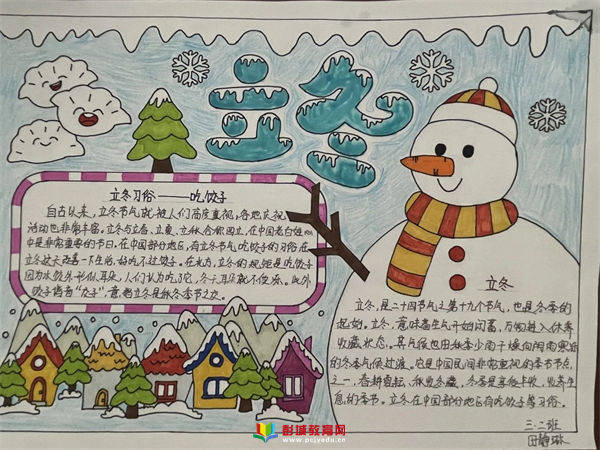 立冬
立冬习俗——吃饺子
自古以来，立冬节气就被人们高度重视，各地庆祝
活动也非常丰富，立冬与立春、立夏、立秋合称四立，在中国老百姓心
中是非常重要的节日，在中国部分地区，有立冬节气吃饺子的习俗在
立冬这天改善一下生活，好吃不过饺子。在北方，立冬的规矩是吃饺子
因为水饺外形似耳朵，人们认为吃了它，冬天耳朵就不受冻。此外
饺子谐音“交子”，意指立冬是秋冬季节之交。
立冬
立冬，是二十四节气之第十九个节气，也是冬季的
起始。立冬，意味着生气开始闭蓄，万物进入休养
收藏状态。其气候也由秋季少雨干燥向阴雨寒冻
的冬季气候过渡。它是中国民间非常重视的季节节点
之一，春耕夏耘，秋收冬藏，冬季是享受丰收、休养生
息的季节。立冬在中国部分地区有吃饺子等习俗。
三.二班
田静琳
彭城教育网
www.pcjyedu.cn